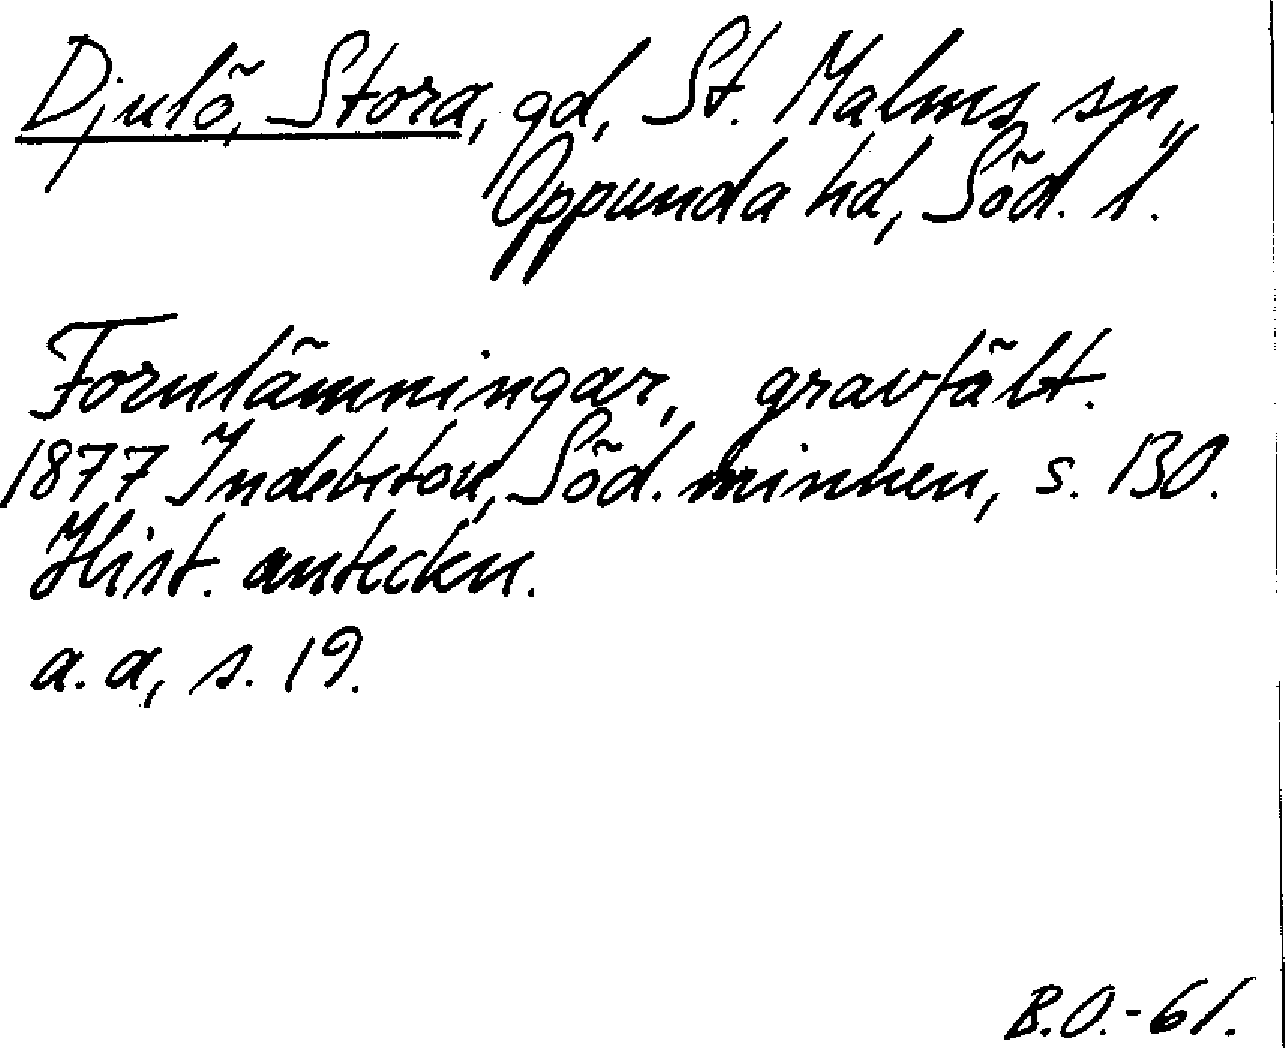 Djulö, Stora, gd, St. Malms sn,
Oppunda hd, Söd. l.
Fornlämningar, gravfält.
1877 Indebetou, Söd. minnen, s. 130.
Hist. anteckn.
a. a, s. 19.
B.O.-61.